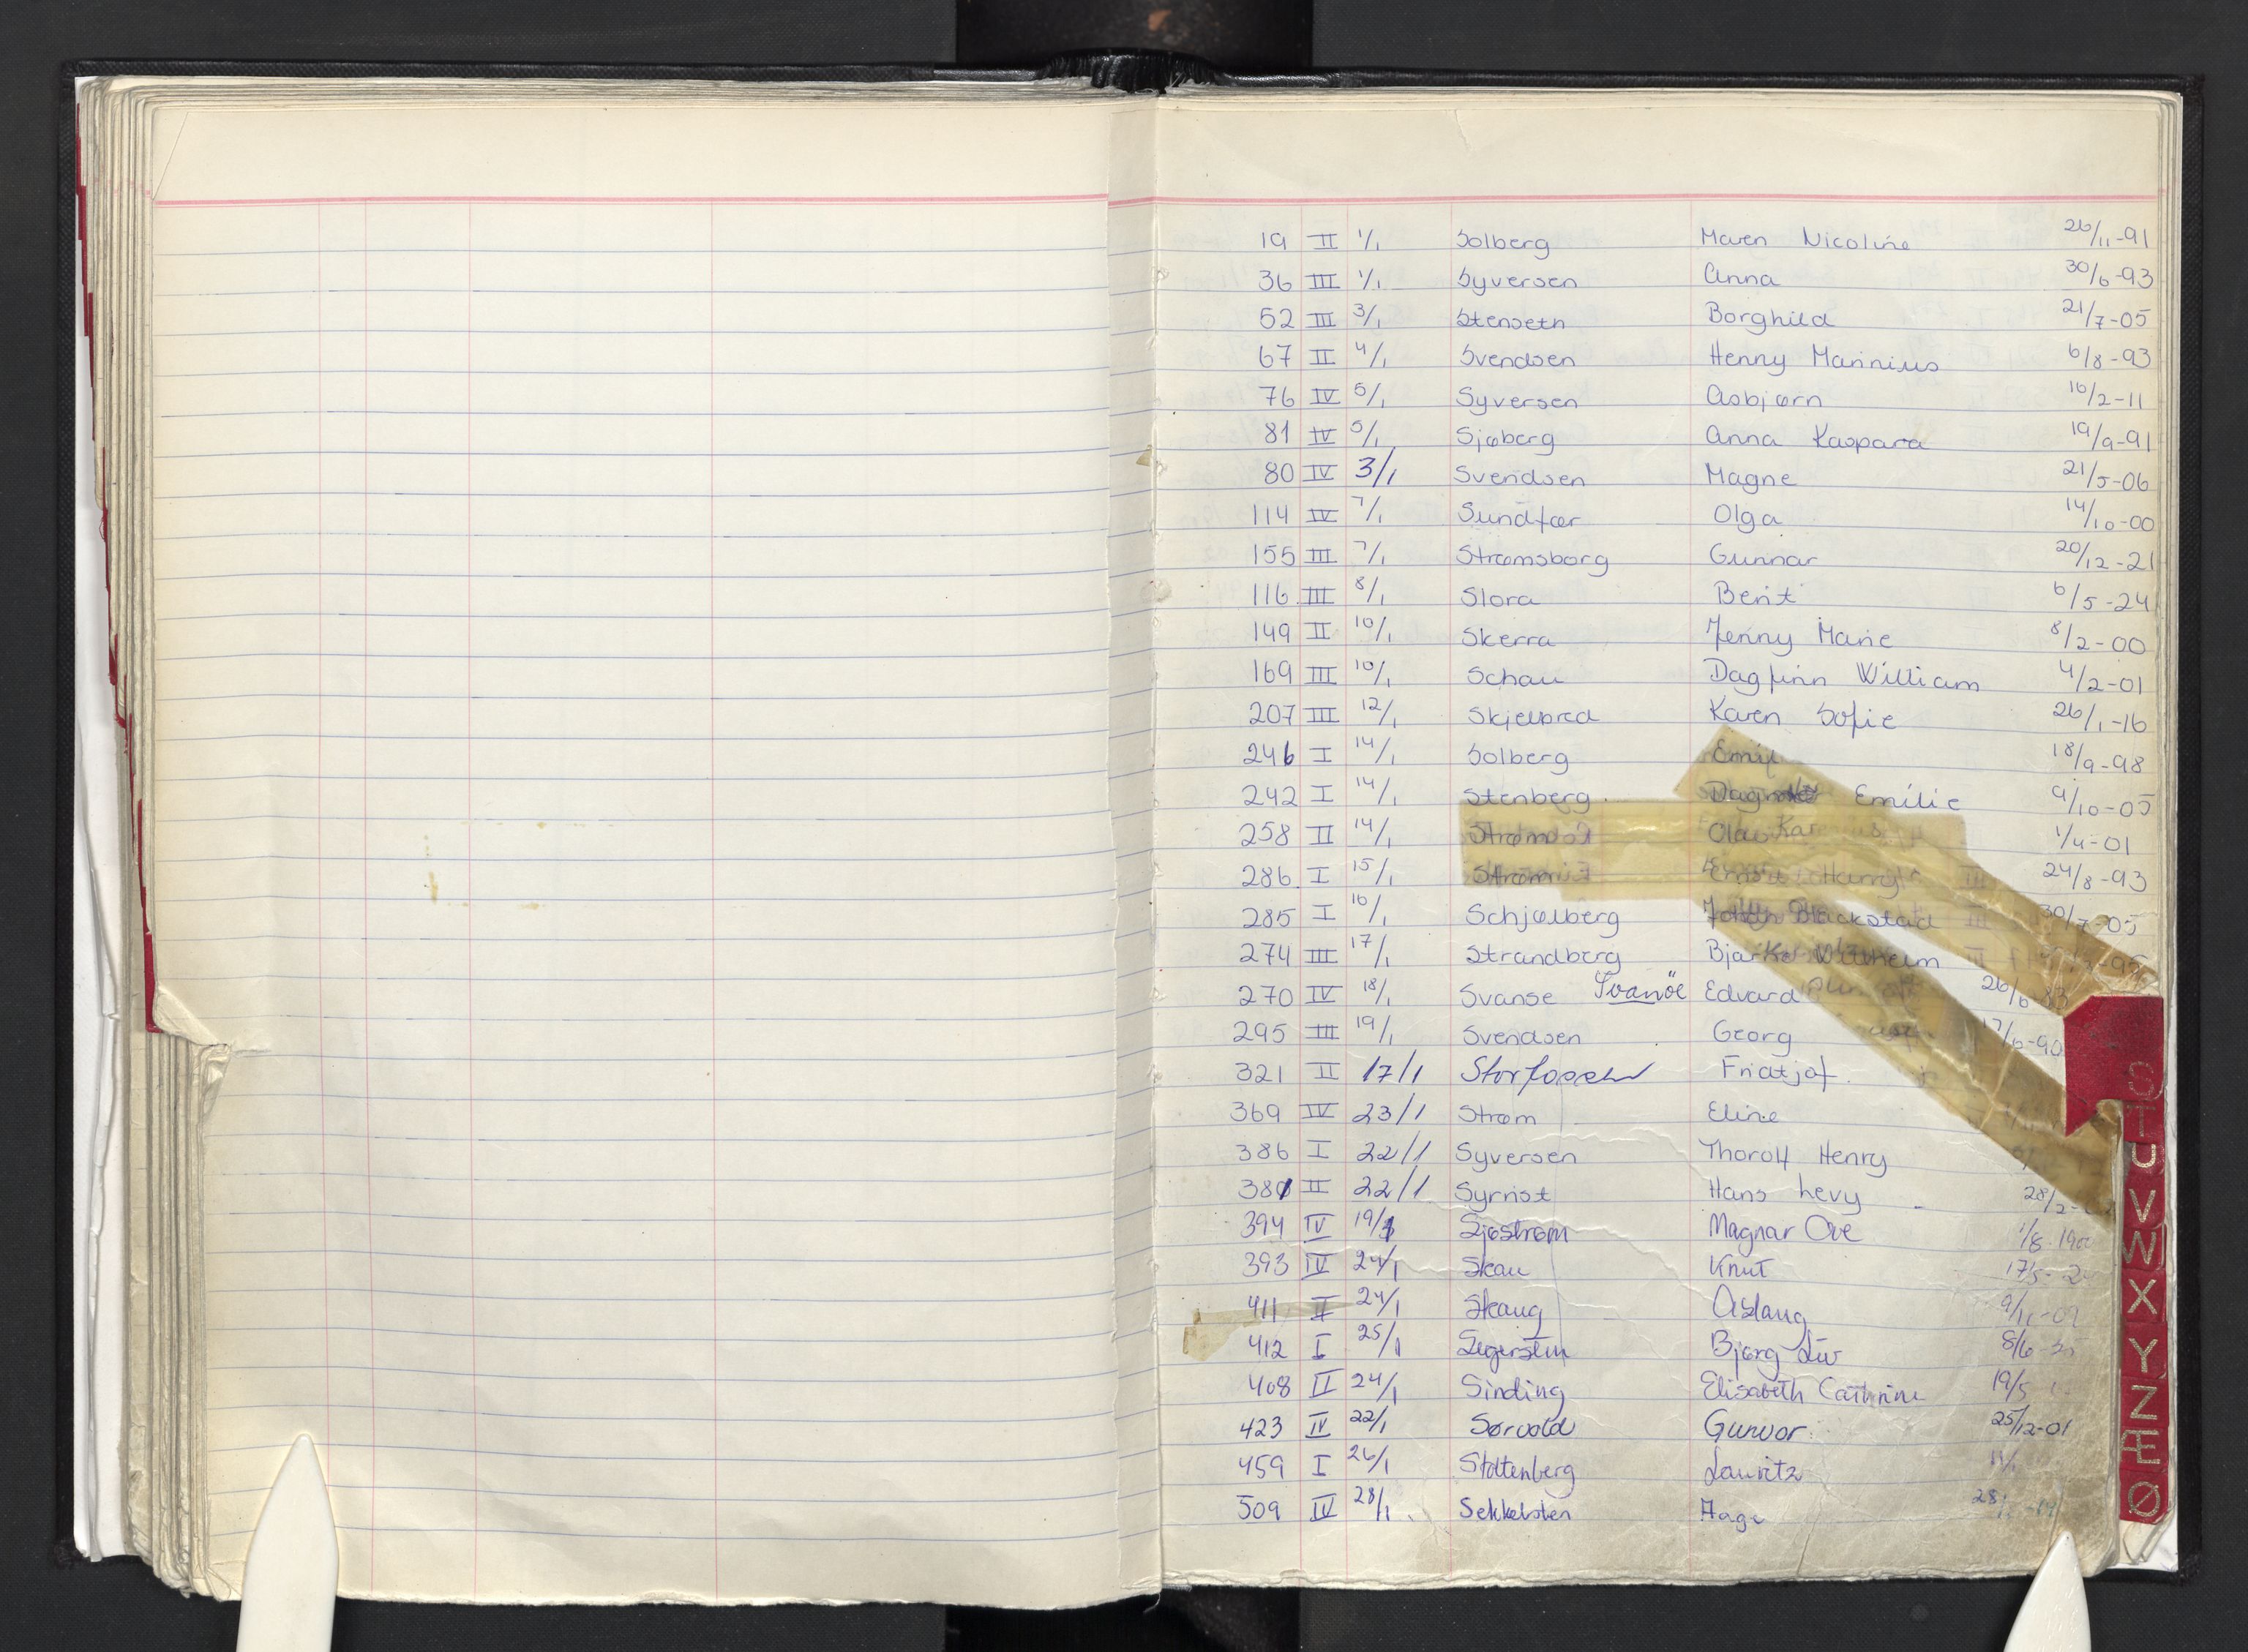 19 II 1/1 Solberg Maren Nicoline 26/11-91
36 III 1/1 Syversen Anna 30/6-93
52 III 3/1 Stenseth Borghild 21/7-05
67 II 4/1 Svendsen Henny Marinius 6/8-93
76 IV 5/1 Syversen Asbjørn 16/2-11
81 IV 5/1 Sjøberg Anna Kaspara 19/9-91
80 IV 3/1 Svendsen Magne 21/5-06
114 IV 7/1 Sundfær Olga 14/10-00
155 III 7/1 Strømsborg Gunnar 20/12-21
116 III 8/1 Slora Berit 6/5-24
149 II 10/1 Skerra Jenny Marie 8/2-00
169 III 10/1 Schau Dagfinn William 4/2-01
207 III 12/1 Skjelbred Karen Sofie 26/1-16
246 I 14/1 Solberg Emil 18/9-98
242 I 14/1 Stenberg Emilie 9/10-05
258 II 14/1 Olav 1/4-01
286 I 15/1 Strøm Harry 24/8-93
285 I 16/1 Schjølberg Blackstad 30/7-05
274 III 17/1 Strandberg Bjarke Wilhelm
270 IV 18/1 Svanse Svanöe Edvard 26/6-83
295 III 19/1 Svendsen Georg 17/6-90
321 II 17/1 Storfossen Fridtjof
369 IV 23/1 Strøm Eline
386 I 22/1 Syversen Thorolf Henry
381 II 22/1 Syrrist Hans Levy 28/2-
394 IV 19/1 Sjøstrøm Magnar Ove 1/8-
393 IV 24/1 Skau Knut 17/5-
411 II 24/1 Skaug Aslaug 9/11-
412 I 25/1 Segersten Bjørg Liv 8/6
408 II 24/1 Sinding Elisabeth Cathrine 19/5
423 IV 22/1 Sørvold Gunvor 25/12-01
459 I 26/1 Stoltenberg Lauritz
509 IV 28/1 Sekkelsten Aage 28/
S
T
U
V
W
X
Y
Z
Æ
Ø